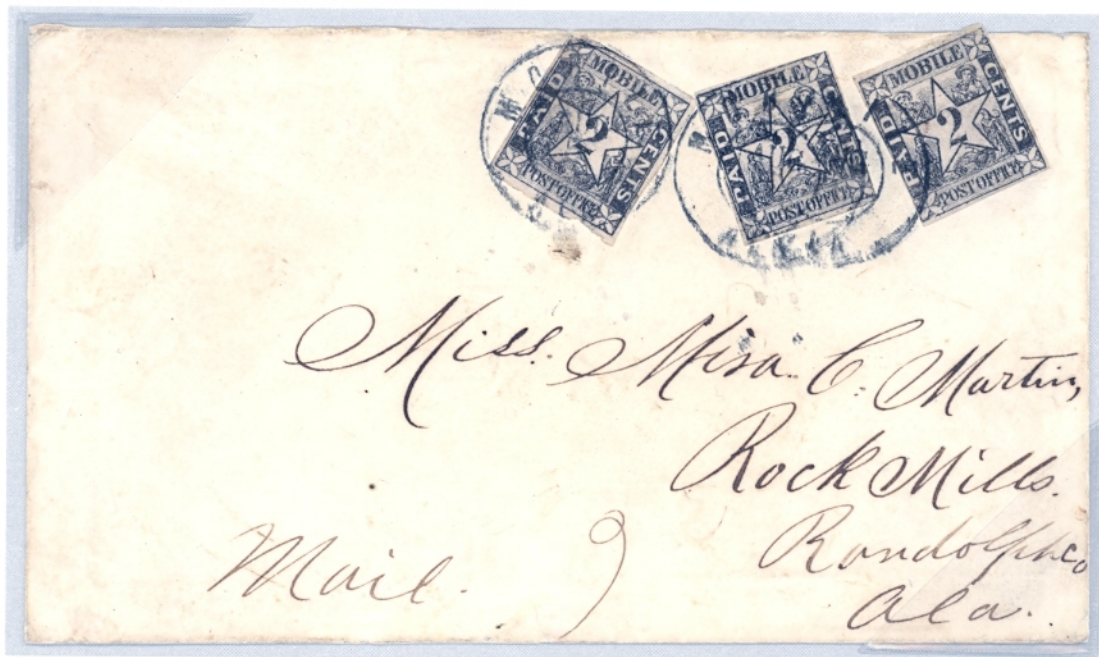 MOBILE
PAID 2 CENTS
POST OFFICE
MOBILE
PAID 2 CENTS
POST OFFICE
MOBILE
PAID 2 CENTS
POST OFFICE
Miss. Misa. C. Martin,
Rock Mills.
Randolph Co
Ala.
Mail.